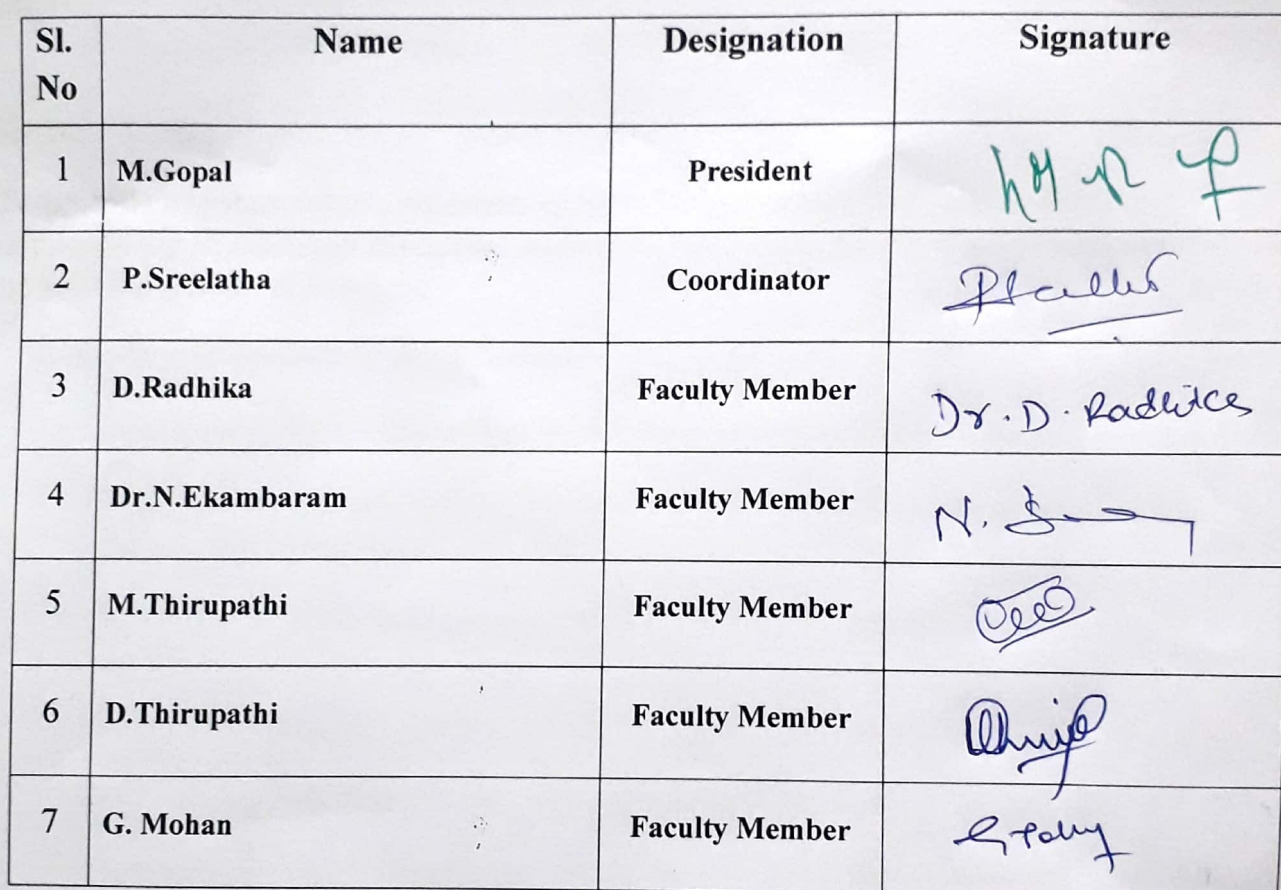 Sl. No Name Designation Signature
1 M.Gopal President
2 P.Sreelatha Coordinator
3 D.Radhika Faculty Member Dr. D. Radhika
4 Dr.N.Ekambaram Faculty Member N.
5 M.Thirupathi Faculty Member
6 D.Thirupathi Faculty Member
7 G. Mohan Faculty Member